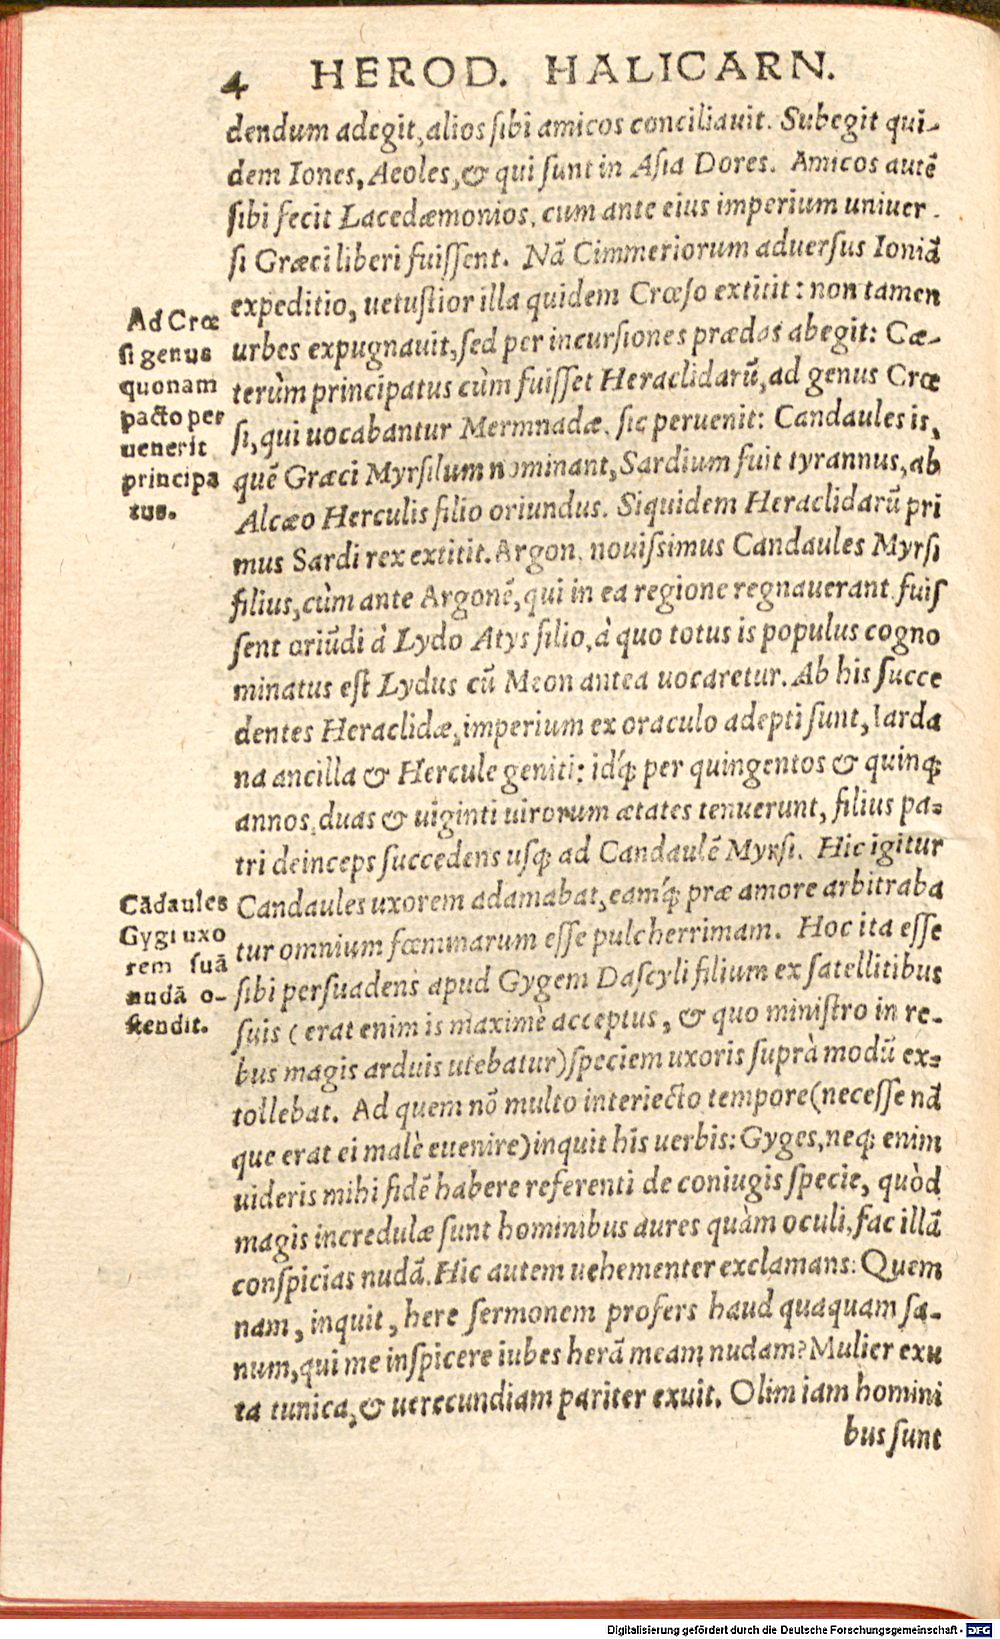 4 HEROD. HALICARN.
dendum adegit, alios ſibi amicos conciliauit. Subegit qui-
dem Iones, Aeoles, & qui ſunt in Aſia Dores. Amicos autē
ſibi fecit Lacedæmonios, cum ante eius imperium uniuer-
ſi Græci liberi fuiſſent. Nā Cimmeriorum aduerſus Ioniā
expeditio, uetuſtior illa quidem Crœſo extitit: non tamen
urbes expugnauit, ſed per incurſiones prædas abegit: Cæ-
terùm principatus cùm fuiſſet Heraclidarū, ad genus Crœ
ſi, qui uocabantur Mermnadæ, ſic peruenit: Candaules is,
quē Græci Myrſilum nominant, Sardium fuit tyrannus, ab
Alcæo Herculis filio oriundus. Siquidem Heraclidarū pri
mus Sardi rex extitit. Argon, nouiſsimus Candaules Myrſi
filius, cùm ante Argonē, qui in ea regione regnauerant fuiſ
ſent oriūdi à Lydo Atys filio, à quo totus is populus cogno
minatus eſt Lydus cū Meon antea uocaretur. Ab his ſucce
dentes Heraclidæ, imperium ex oraculo adepti ſunt, Iarda
na ancilla & Hercule geniti: idq́; per quingentos & quinq;
annos, duas & uiginti uirorum ætates tenuerunt, filius pa-
tri deinceps ſuccedens uſq; ad Candaulē Myrſi. Hic igitur
Candaules uxorem adamabat, eamq́; præ amore arbitraba
tur omnium fœminarum eſſe pulcherrimam. Hoc ita eſſe
ſibi perſuadens apud Gygem Daſcyli filium ex ſatellitibus
ſuis (erat enim is maximè acceptus, & quo miniſtro in re-
bus magis arduis utebatur) ſpeciem uxoris ſuprà modū ex-
tollebat. Ad quem nō multo interiecto tempore (neceſſe nā
que erat ei malè euenire) inquit his uerbis: Gyges, neq; enim
uideris mihi fidē habere referenti de coniugis ſpecie, quòd
magis incredulæ ſunt hominibus aures quàm oculi, fac illā
conſpicias nudā. Hic autem uehementer exclamans: Quem
nam, inquit, here ſermonem profers haud quaquam ſa-
num, qui me inſpicere iubes herā meam nudam? Mulier exu
ta tunica, & uerecundiam pariter exuit. Olim iam homini
bus ſunt
Ad Crœ
ſi genus
quonam
pacto per
uenerit
principa
tus.
Cādaules
Gygi uxo
rem ſuā
nudā o-
ſtendit.
Digitalisierung gefördert durch die Deutsche Forschungsgemeinschaft - DFG